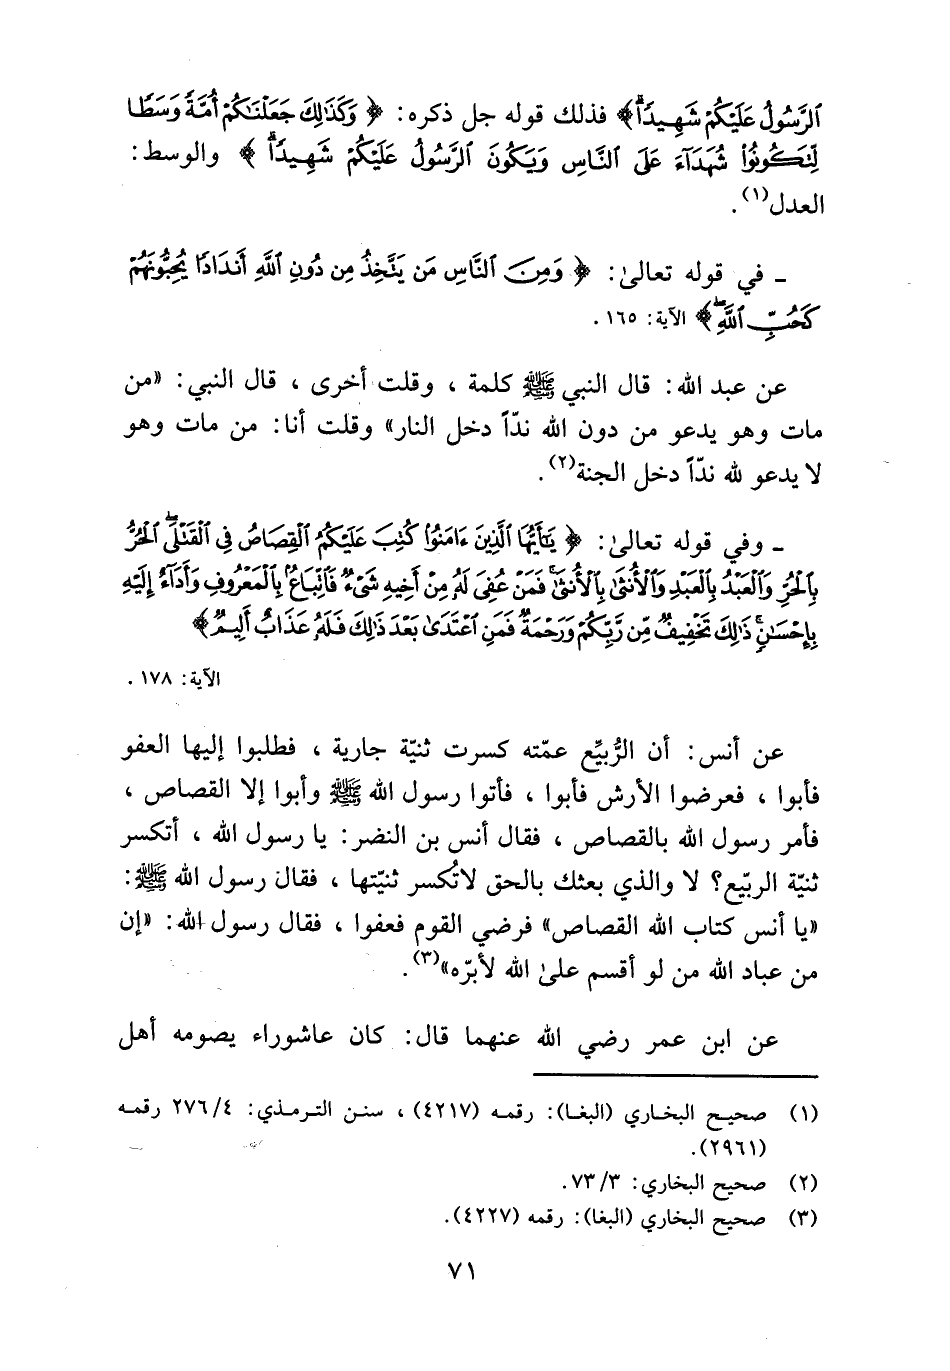 الرَّسُولُ عَلَيْكُمْ شَهِيدًا﴾ فذلك قوله جل ذكره: ﴿ وَكَذَٰلِكَ جَعَلْنَاكُمْ أُمَّةً وَسَطًا
لِّتَكُونُوا شُهَدَاءَ عَلَى النَّاسِ وَيَكُونَ الرَّسُولُ عَلَيْكُمْ شَهِيدًا ﴾ والوسط:
العدل(١).
ـ في قوله تعالىٰ: ﴿ وَمِنَ النَّاسِ مَن يَتَّخِذُ مِن دُونِ اللَّهِ أَندَادًا يُحِبُّونَهُمْ
كَحُبِّ اللَّهِ ﴾ الآية: ١٦٥ .
عن عبد الله: قال النبي ﷺ كلمة ، وقلت أخرى ، قال النبي: «من
مات وهو يدعو من دون الله ندّاً دخل النار» وقلت أنا: من مات وهو
لا يدعو لله ندّاً دخل الجنة(٢).
ـ وفي قوله تعالىٰ: ﴿ يَٰأَيُّهَا الَّذِينَ ءَامَنُوا كُتِبَ عَلَيْكُمُ الْقِصَاصُ فِي الْقَتْلَى الْحُرُّ
بِالْحُرِّ وَالْعَبْدُ بِالْعَبْدِ وَالْأُنثَىٰ بِالْأُنثَىٰ فَمَنْ عُفِيَ لَهُ مِنْ أَخِيهِ شَيْءٌ فَاتِّبَاعٌ بِالْمَعْرُوفِ وَأَدَاءٌ إِلَيْهِ
بِإِحْسَٰنٍ ذَٰلِكَ تَخْفِيفٌ مِّن رَّبِّكُمْ وَرَحْمَةٌ فَمَنِ اعْتَدَىٰ بَعْدَ ذَٰلِكَ فَلَهُ عَذَابٌ أَلِيمٌ ﴾
الآية: ١٧٨ .
عن أنس: أن الرُّبيِّع عمّته كسرت ثنيّة جارية ، فطلبوا إليها العفو
فأبوا ، فعرضوا الأرش فأبوا ، فأتوا رسول الله ﷺ وأبوا إلا القصاص ،
فأمر رسول الله بالقصاص ، فقال أنس بن النضر: يا رسول الله ، أتكسر
ثنيّة الربيّع؟ لا والذي بعثك بالحق لاتُكسر ثنيّتها ، فقال رسول الله ﷺ:
«يا أنس كتاب الله القصاص» فرضي القوم فعفوا ، فقال رسول الله: «إن
من عباد الله من لو أقسم علىٰ الله لأبرّه»(٣).
عن ابن عمر رضي الله عنهما قال: كان عاشوراء يصومه أهل
(١) صحيح البخاري (البغا): رقمه (٤٢١٧) ، سنن الترمذي: ٢٧٦/٤ رقمه
(٢٩٦١).
(٢) صحيح البخاري: ٧٣/٣.
(٣) صحيح البخاري (البغا): رقمه (٤٢٢٧).
٧١